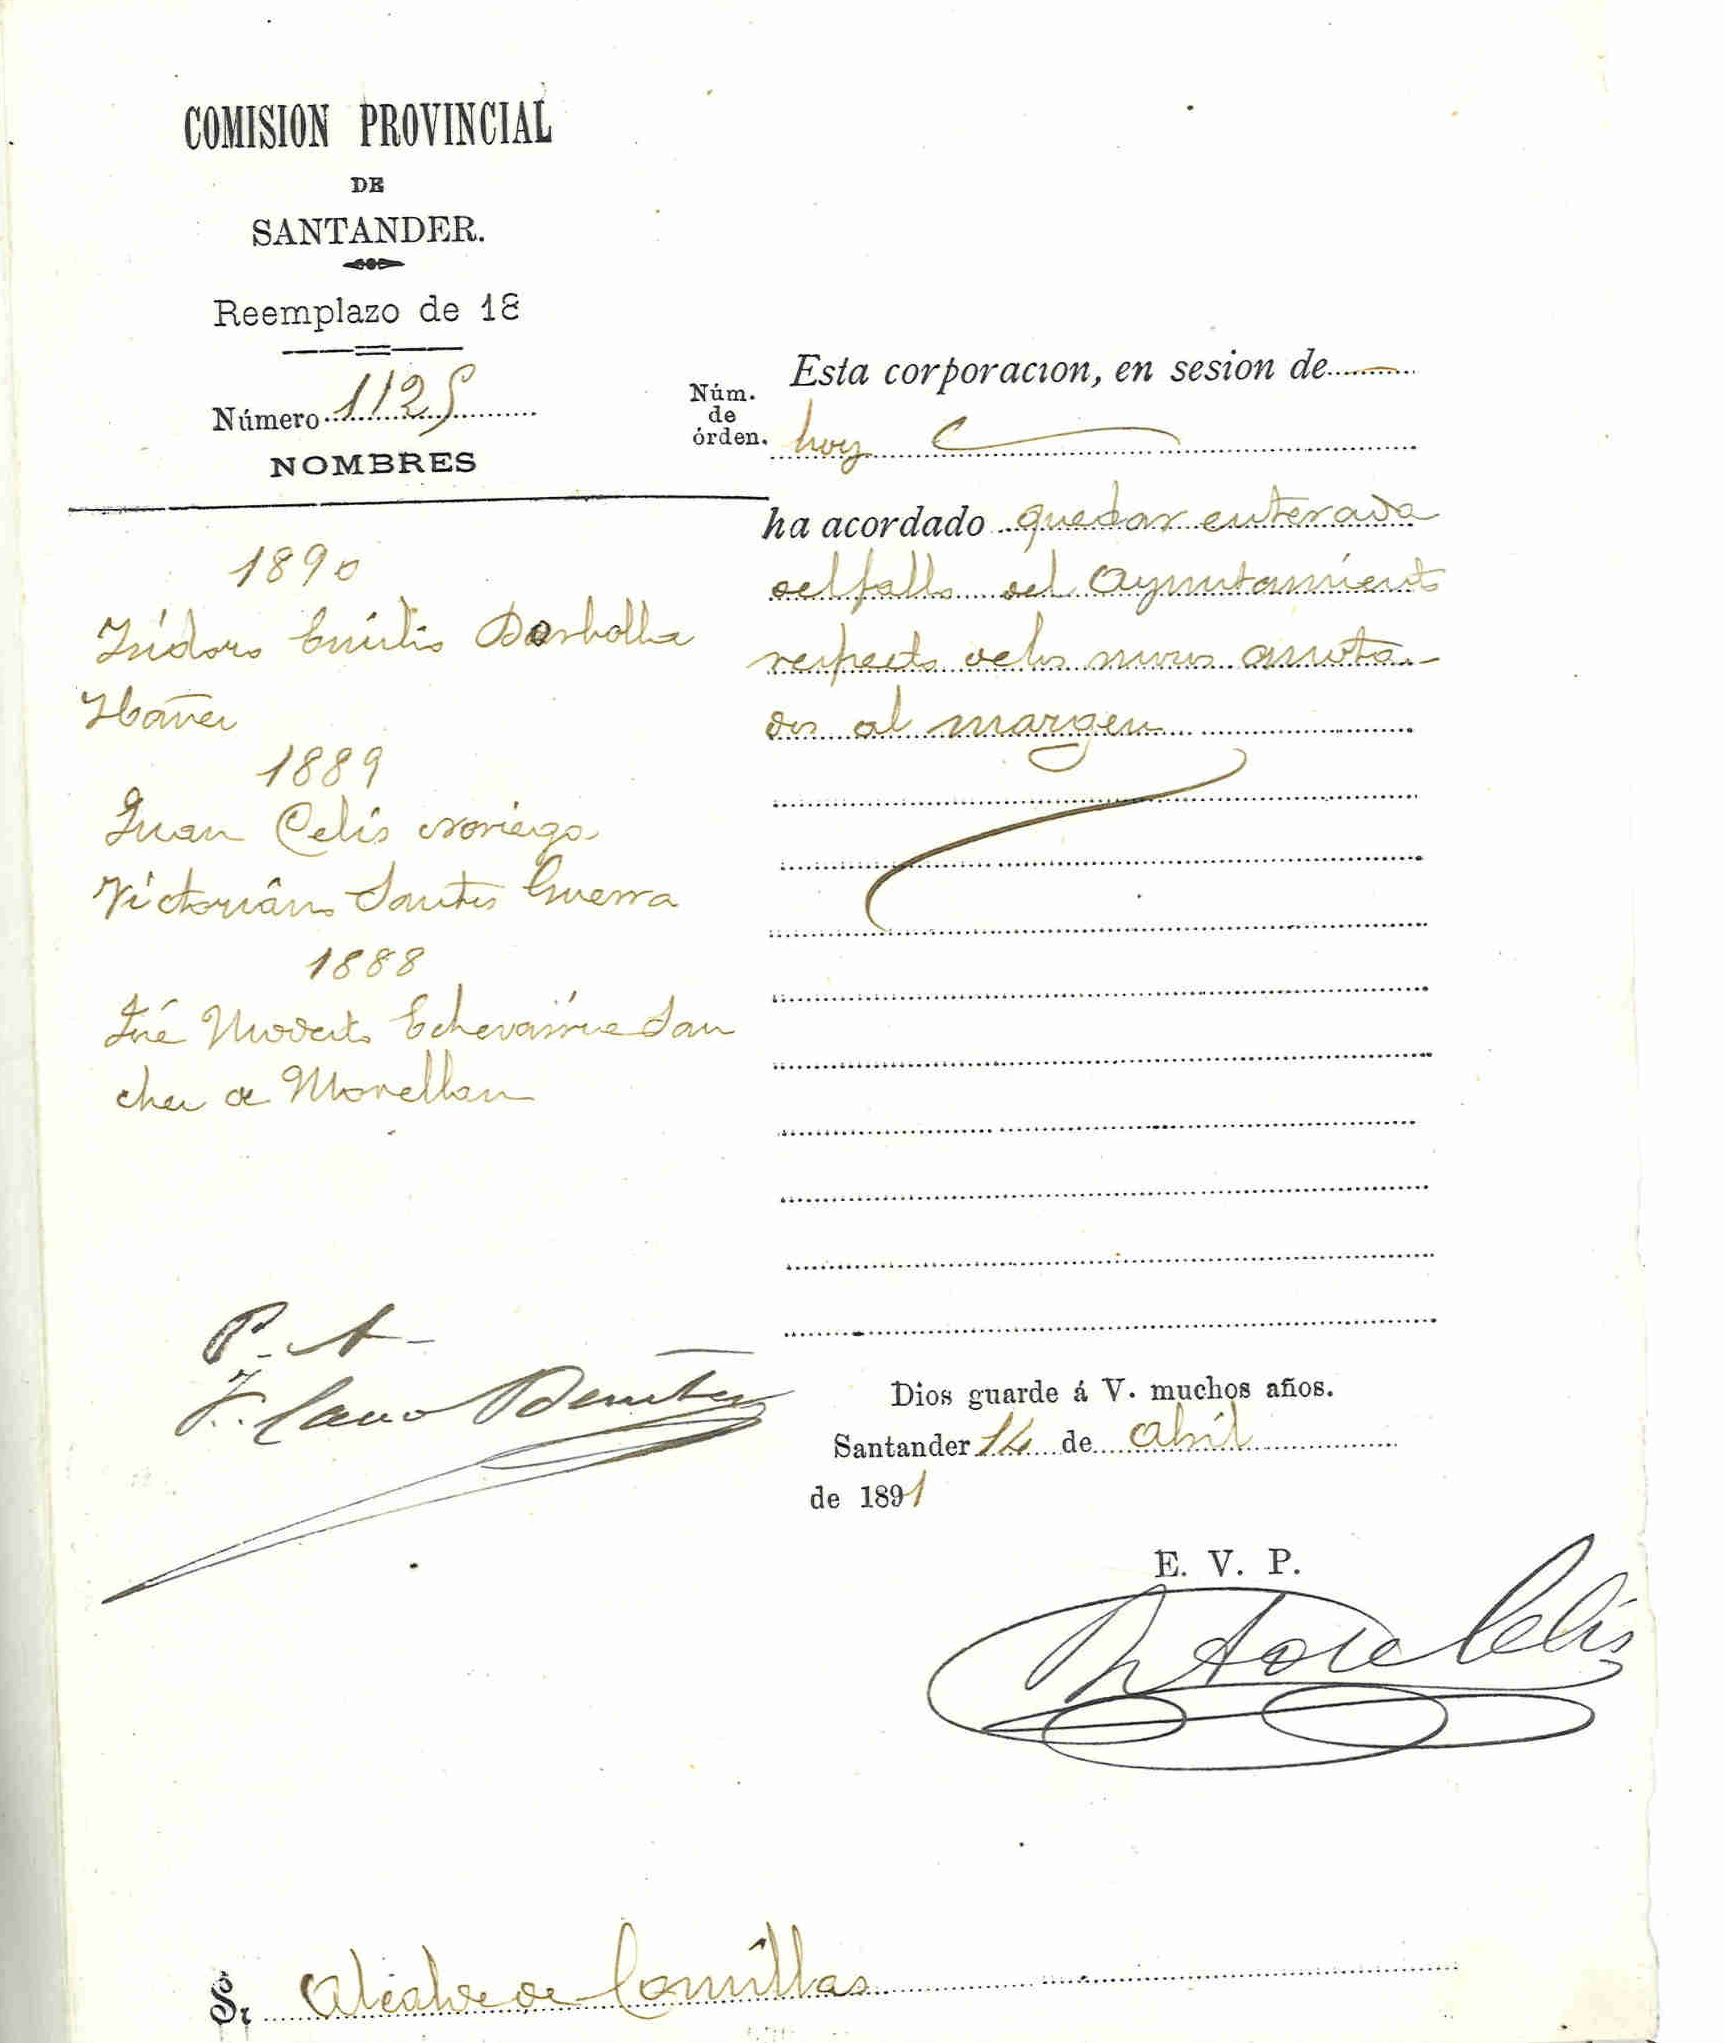 COMISION PROVINCIAL
DE
SANTANDER.
Reemplazo de 18
Número 1125
NOMBRES
1890
Isidoro Emilio Barbolla
Ibañez
1889
Juan Celis Noriega
Victoriano Santos Guerra
1888
José Modesto Echevarria San
chez de Movellan
P. A.
Cano Benitez
Núm.
de
órden.
Esta corporacion, en sesion de
hoy
ha acordado quedar enterada
del fallo del Ayuntamiento
respecto de los mozos anota-
dos al margen
Dios guarde á V. muchos años.
Santander 14 de Abril
de 1891
E. V. P.
Celis
Sr. Alcalde de Comillas